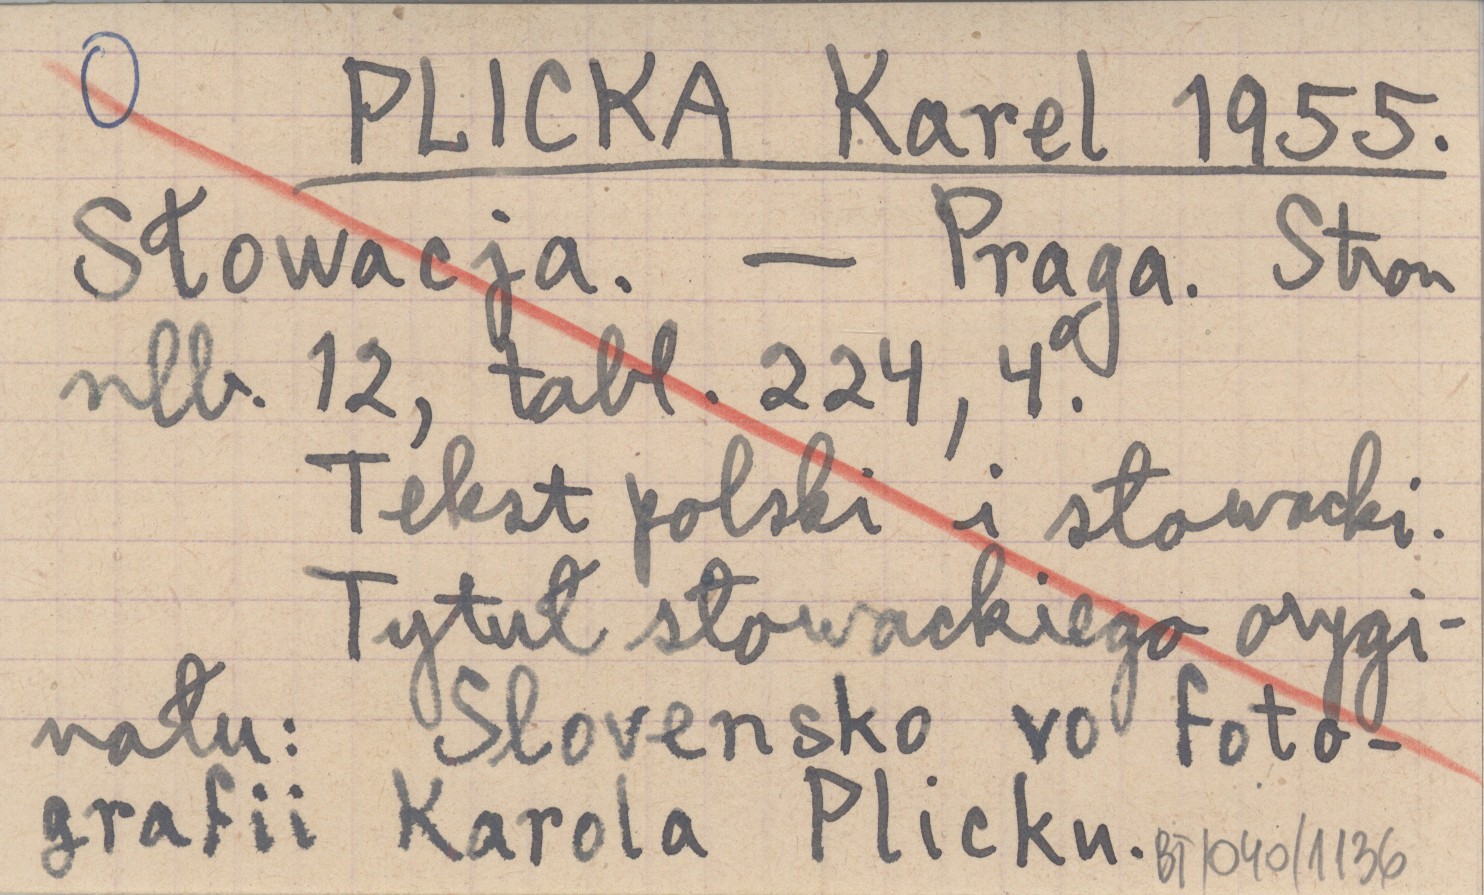 O PLICKA Karel 1955.
Słowacja. — Praga. Stron
nlb. 12, tabl. 224, 4°.
Tekst polski i słowacki.
Tytuł słowackiego orygi-
nału: Slovensko vo foto-
grafii Karola Plicku.
BT/040/1136